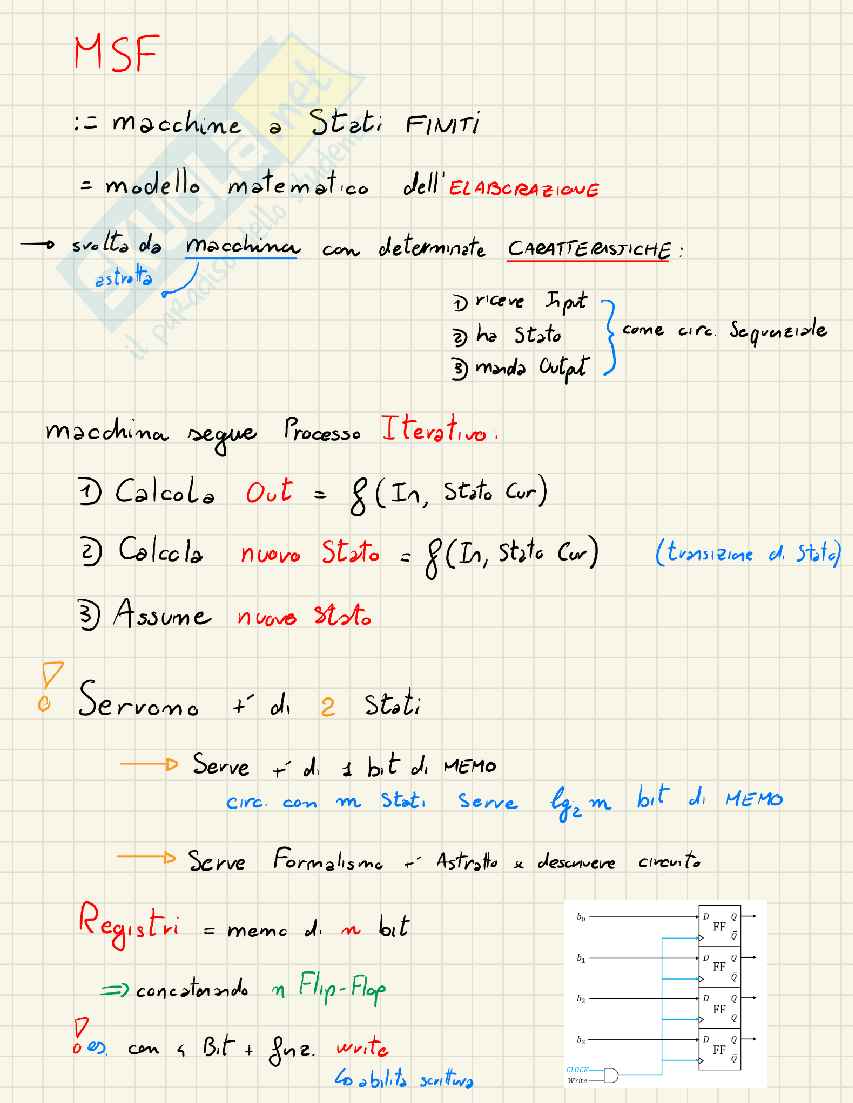 MSF
:= macchine a Stati FINITI
= modello matematico dell'ELABORAZIONE
→ svolta da macchina con determinate CARATTERISTICHE:
astratta
1) riceve Input
2) ha Stato
3) manda Output
come circ. Sequenziale
macchina segue Processo Iterativo:
1) Calcola Out = f(In, Stato Cur)
2) Calcola nuovo Stato = f(In, Stato Cur) (transizione di Stato)
3) Assume nuovo Stato
! Servono + di 2 Stati
→ Serve + di 1 bit di MEMO
circ. con m Stati Serve lg₂ m bit di MEMO
→ Serve Formalismo + Astratto x descrivere circuito
Registri = memo di n bit
⇒ concatenando n Flip-Flop
! es. con 4 Bit + funz. write
↳ abilita scrittura
b₀ D Q
FF
Q̄
b₁ D Q
FF
Q̄
b₂ D Q
FF
Q̄
b₃ D Q
FF
Q̄
CLOCK
Write
SKUOLA.net
il paradiso dello studente